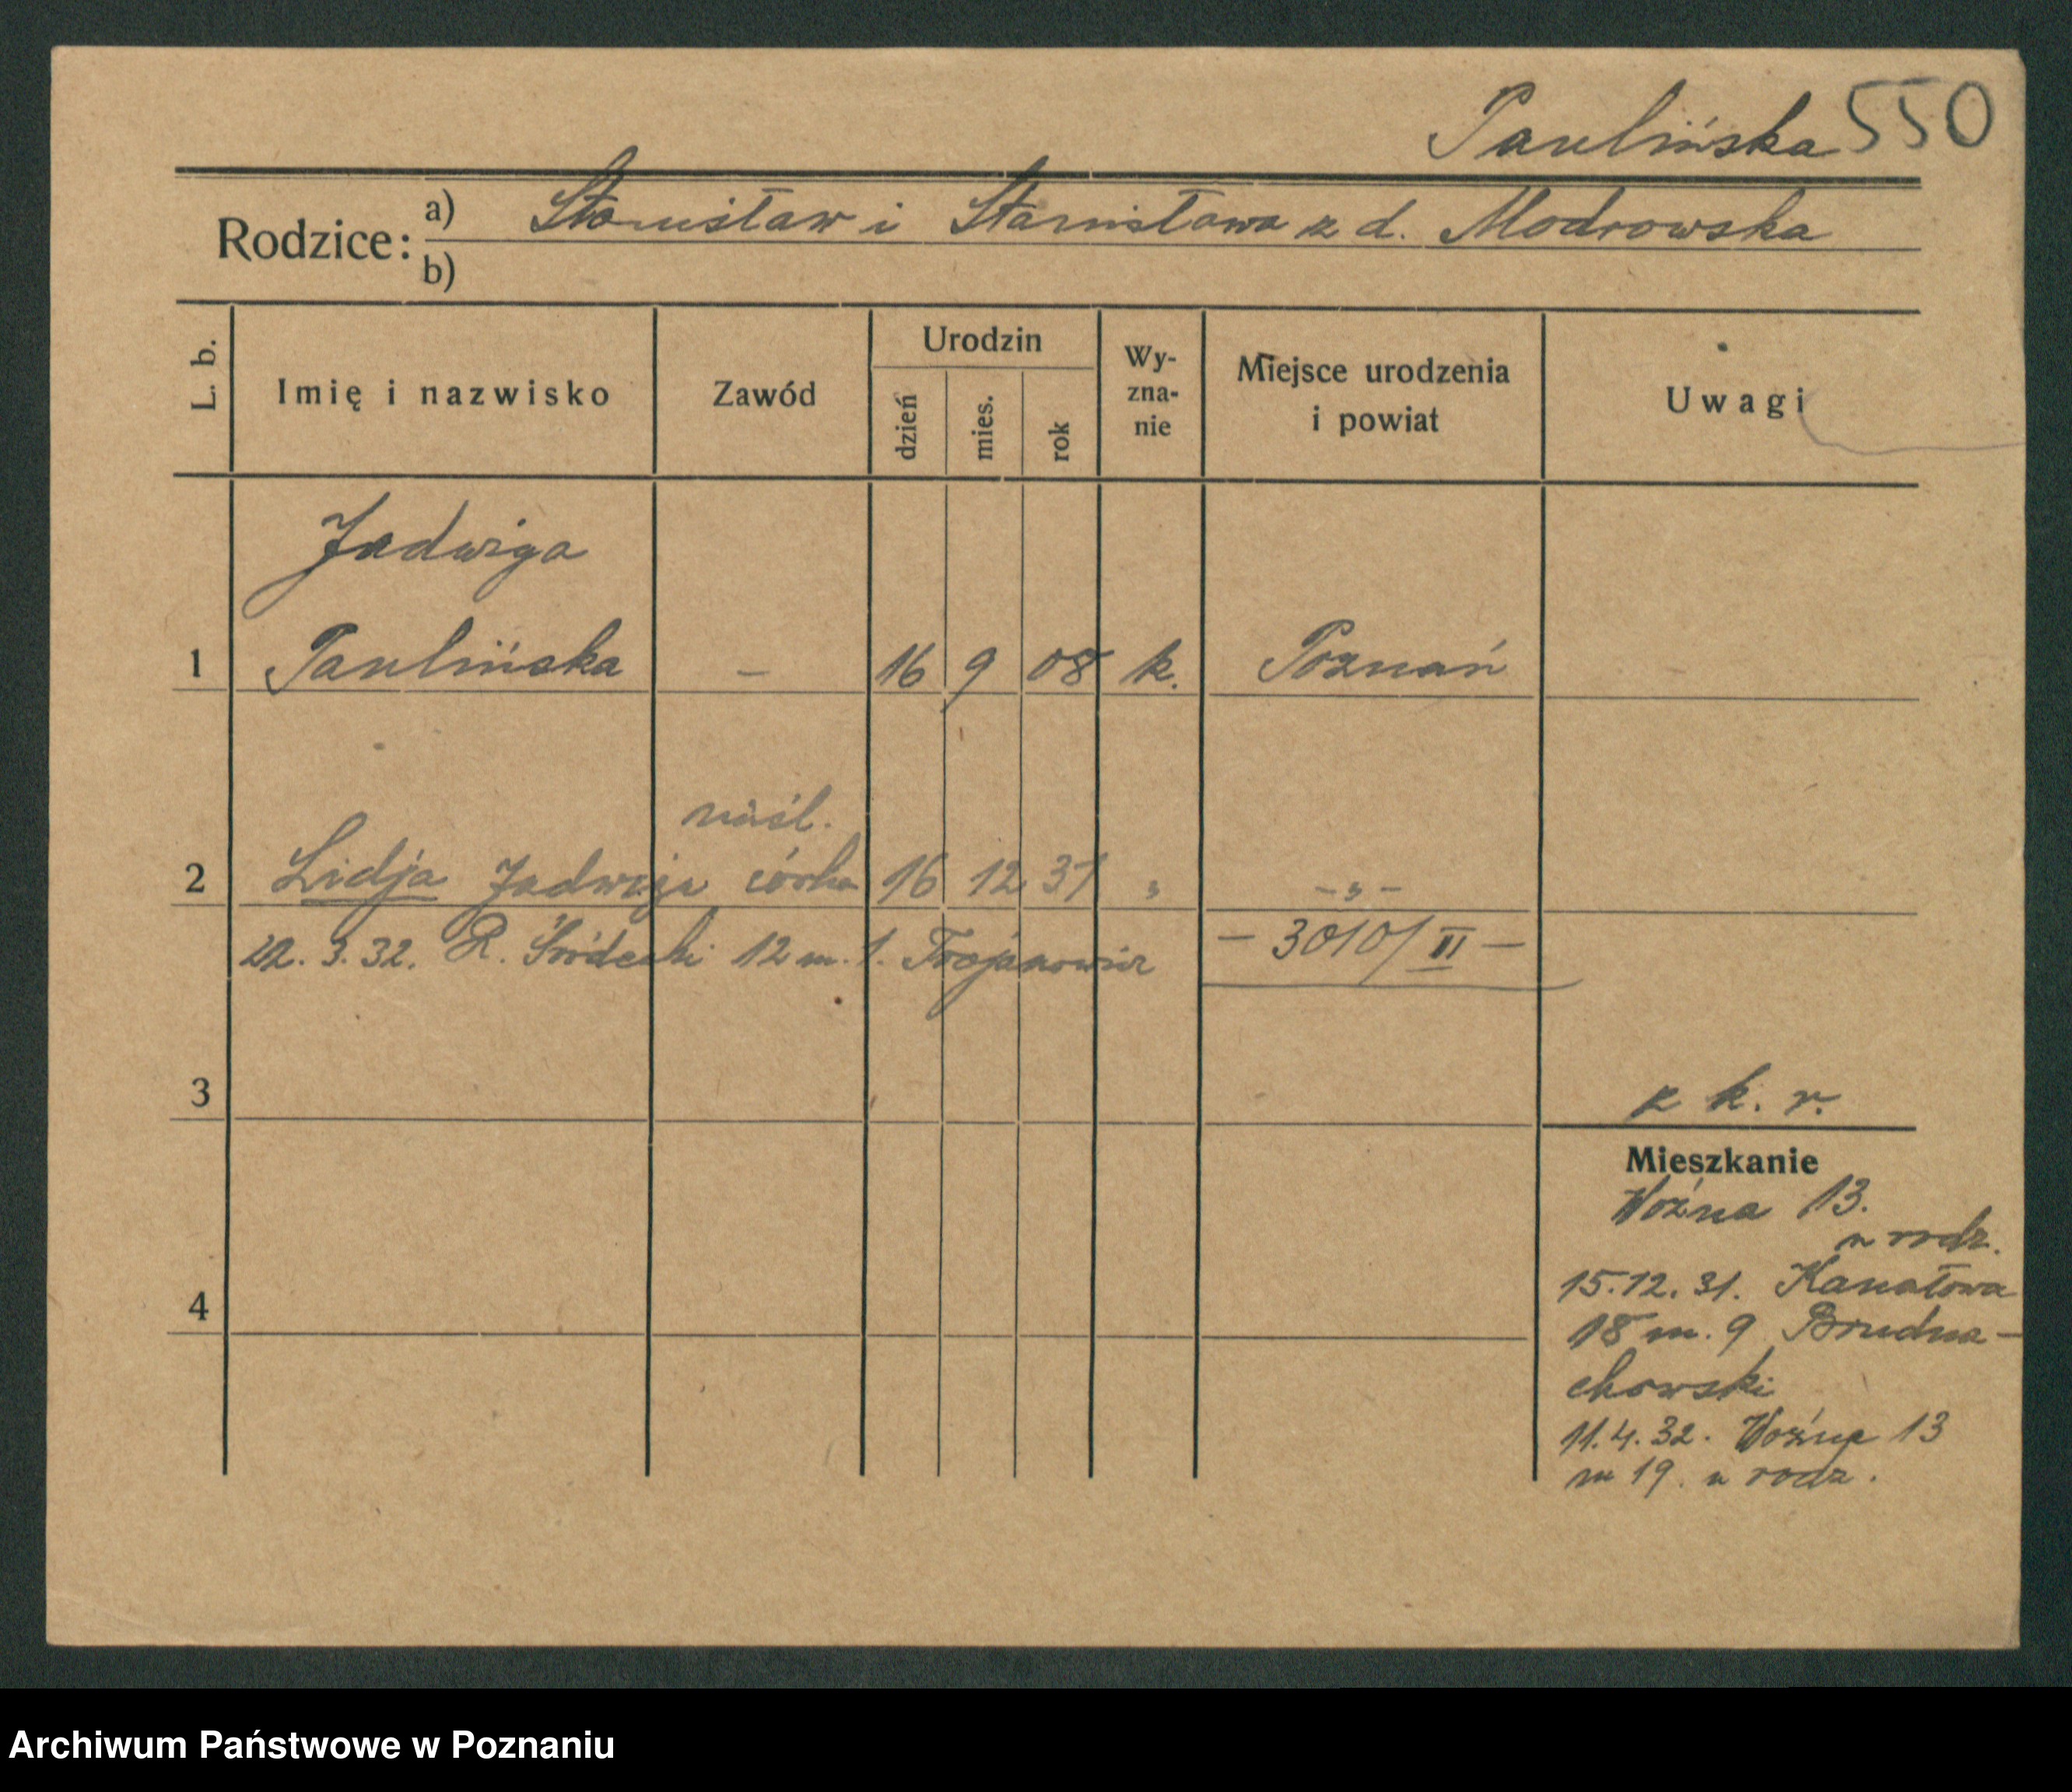 Paulińska 550
Rodzice: a) Stanisław i Stanisława z d. Modrowska
b)
L. b. Imię i nazwisko Zawód Urodzin dzień mies. rok Wy-zna-nie Miejsce urodzenia i powiat Uwagi
Jadwiga
1 Paulińska – 16 9 08 k. Poznań
nieśl.
2 Lidja Jadwiga córka 16 12 31 „ – „ –
22. 3. 32. R. Śródecki 12 m. 1. Trojanowicz – 3010/II –
3 z k. r.
Mieszkanie
Woźna 13.
u rodz.
15.12.31. Kanałowa
18 m. 9
chowski
4
11.4.32. Woźna 13
m 19. u rodz.
Archiwum Państwowe w Poznaniu